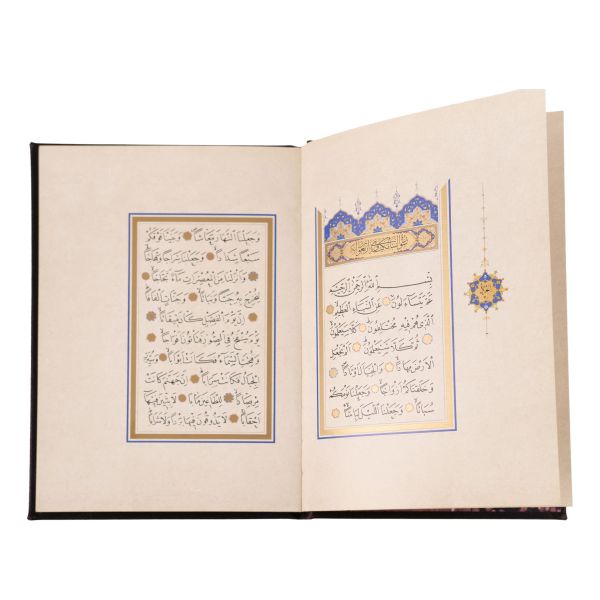 بِسْمِ اللهِ الرَّحْمٰنِ الرَّحِيمِ
عَمَّ يَتَسَاءَلُونَ عَنِ النَّبَإِ الْعَظِيمِ
الَّذِي هُمْ فِيهِ مُخْتَلِفُونَ كَلَّا سَيَعْلَمُونَ
ثُمَّ كَلَّا سَيَعْلَمُونَ اَلَمْ نَجْعَلِ
الْاَرْضَ مِهَادًا وَالْجِبَالَ اَوْتَادًا
وَخَلَقْنَاكُمْ اَزْوَاجًا وَجَعَلْنَا نَوْمَكُمْ
سُبَاتًا وَجَعَلْنَا الَّيْلَ لِبَاسًا
وَجَعَلْنَا النَّهَارَ مَعَاشًا وَبَنَيْنَا فَوْقَكُمْ
سَبْعًا شِدَادًا وَجَعَلْنَا سِرَاجًا وَهَّاجًا
وَاَنْزَلْنَا مِنَ الْمُعْصِرَاتِ مَاءً ثَجَّاجًا
لِنُخْرِجَ بِهِ حَبًّا وَنَبَاتًا وَجَنَّاتٍ اَلْفَافًا
اِنَّ يَوْمَ الْفَصْلِ كَانَ مِيقَاتًا
يَوْمَ يُنْفَخُ فِي الصُّورِ فَتَأْتُونَ اَفْوَاجًا
وَفُتِحَتِ السَّمَاءُ فَكَانَتْ اَبْوَابًا وَسُيِّرَتِ
الْجِبَالُ فَكَانَتْ سَرَابًا اِنَّ جَهَنَّمَ كَانَتْ
مِرْصَادًا لِلطَّاغِينَ مَاٰبًا لَابِثِينَ فِيهَا
اَحْقَابًا لَا يَذُوقُونَ فِيهَا بَرْدًا وَلَا شَرَابًا